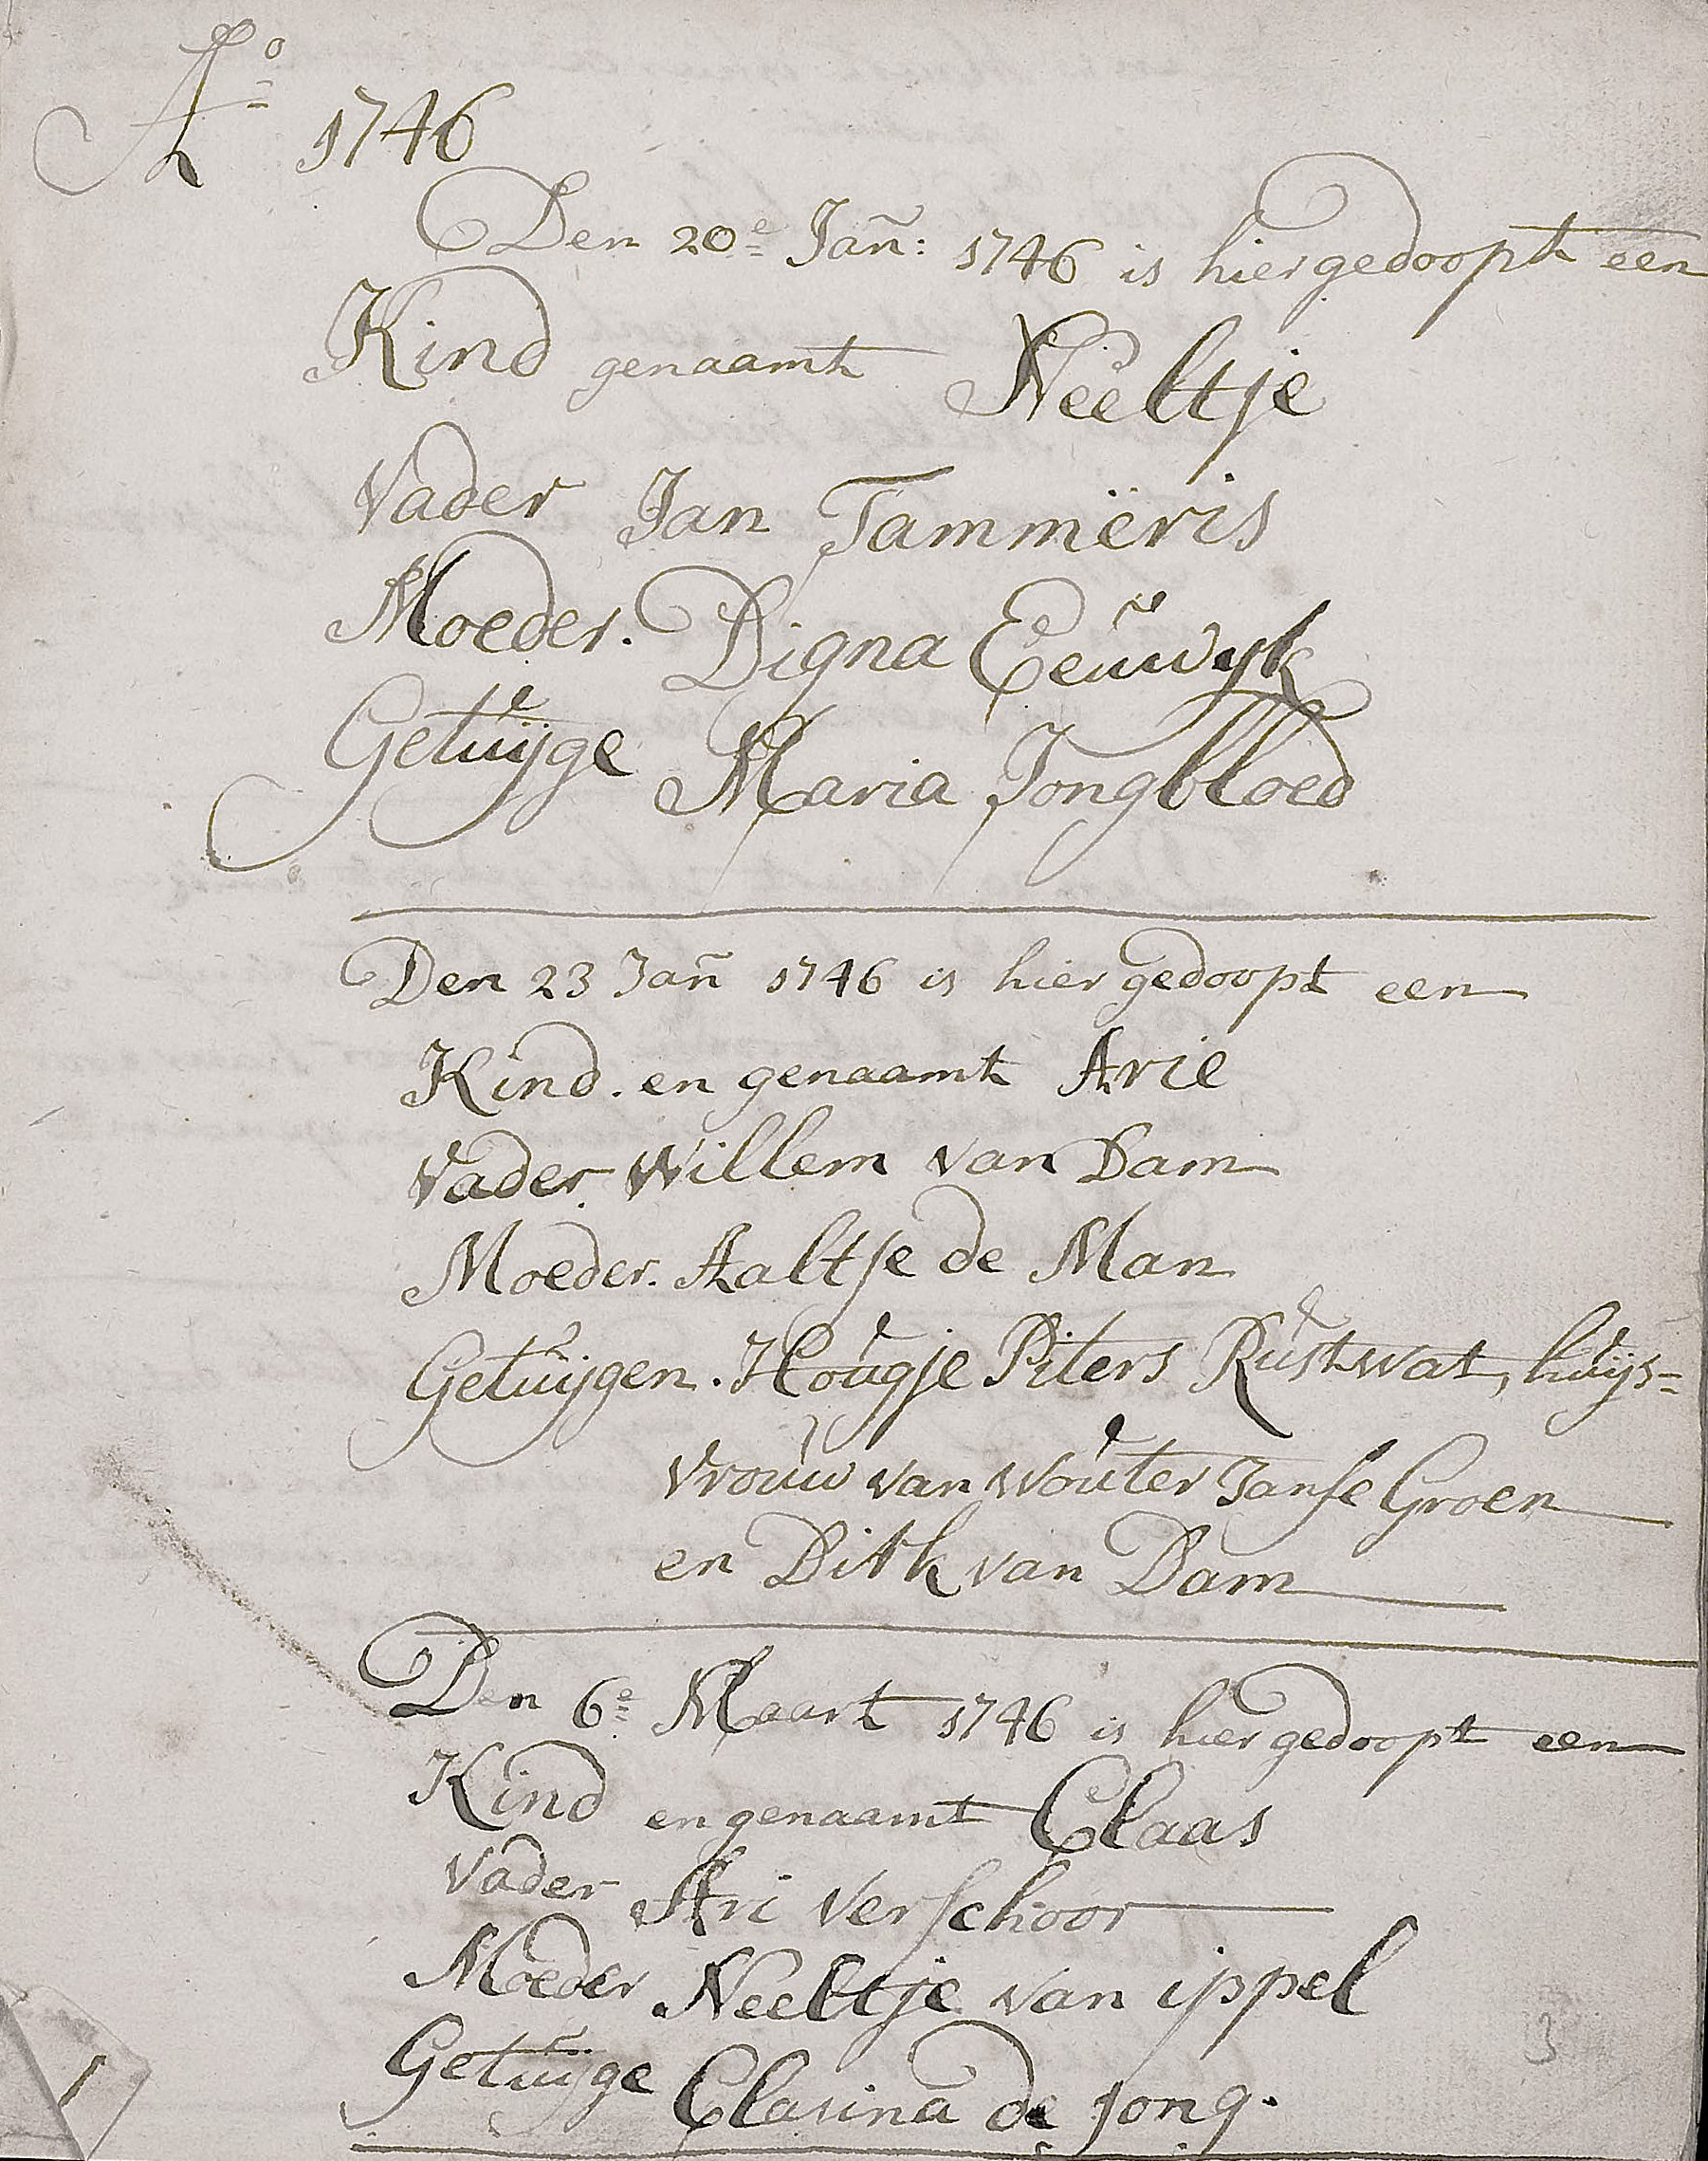 Ao 1746
Den 20e Jañ: 1746 is hier gedoopt een
Kind genaamt Neeltje
Vader Jan Tammëris
Moeder. Digna Eeuwyk
Getuijge Maria Jongbloed
Den 23 Jañ 1746 is hier gedoopt een
Kind. en genaamt Arie
Vader Willem van Dam
Moeder. Aaltje de Man
Getuijgen. Hougje Piters Rustwat, huijs=
vrouw van Wouter Janse Groen
en Dirk van Dam
Den 6e Maart 1746 is hier gedoopt een
Kind en genaamt Claas
Vader Ari Verschoor
Moeder Neeltje van ippel
Getuijge Clasina de jong.
3